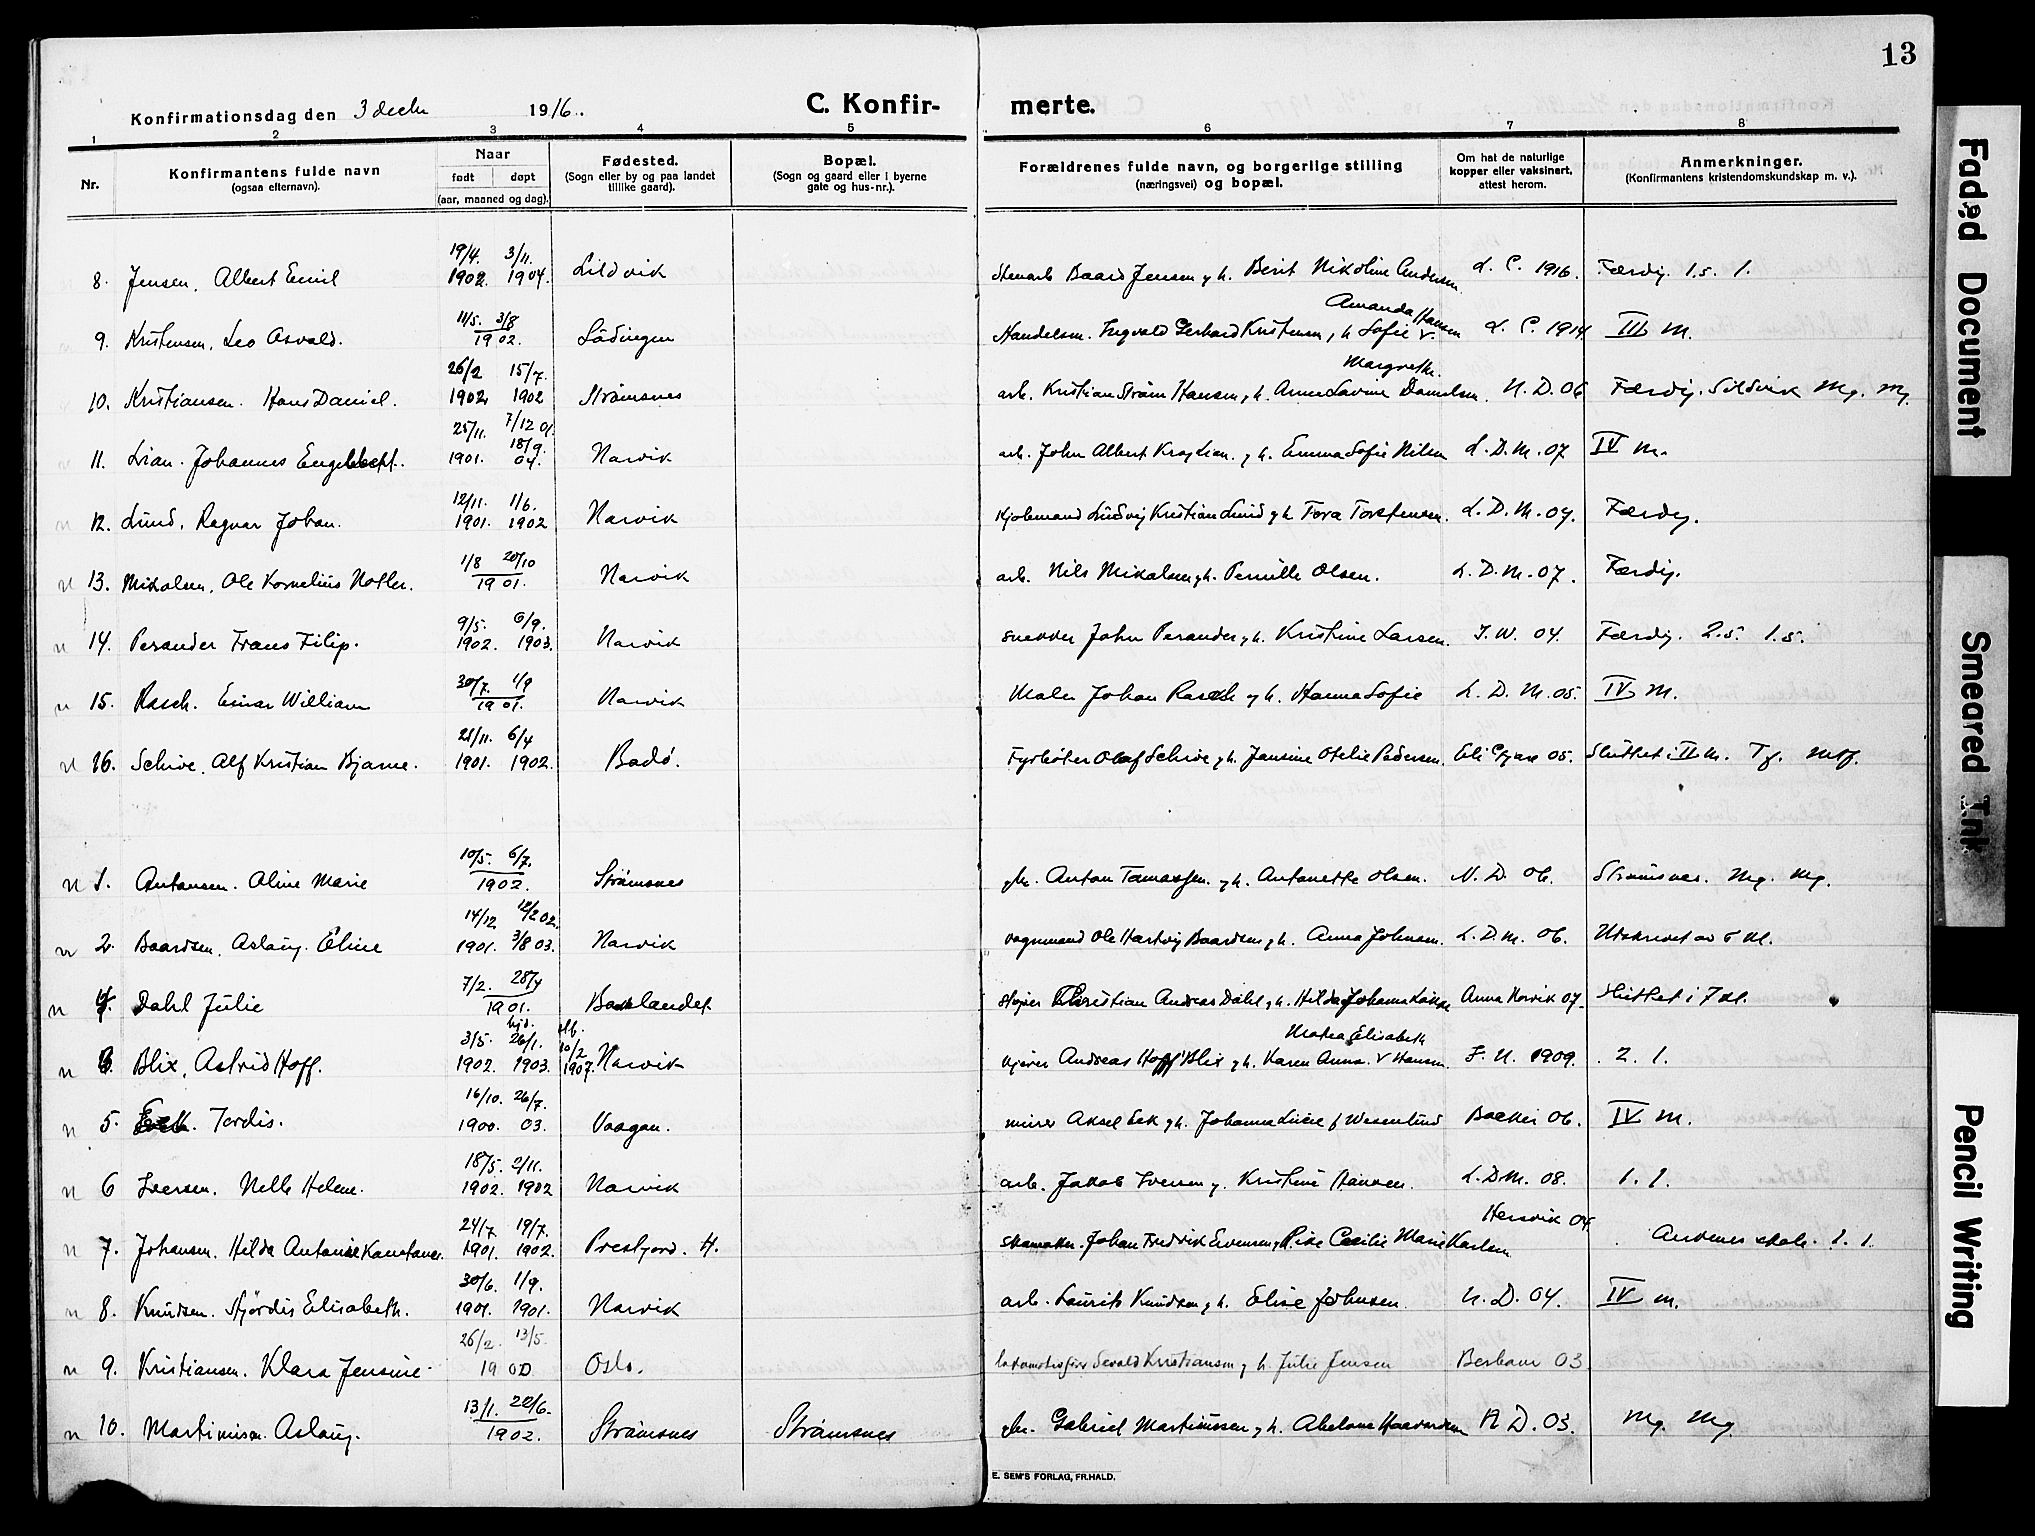 13
Konfirmationsdag den 3 decbr 1916. C. Konfirmerte.
1 2 3 4 5 6 7 8
Nr. Konfirmantens fulde navn (ogsaa efternavn). Naar født døpt (aar, maaned og dag). Fødested. (Sogn eller by og paa landet tillike gaard). Bopæl. (Sogn og gaard eller i byerne gate og hus-nr.). Forældrenes fulde navn, og borgerlige stilling (næringsvei) og bopæl. Om hat de naturlige kopper eller vaksinert, attest herom. Anmerkninger. (Konfirmantens kristendomskundskap m. v.).
8. Jensen, Albert Emil 19/4. 1902. 3/11. 1904. Sildvik Stenarb Baard Jensen g. h. Berit Nikoline Andersen L. C. 1916. Færdig. 1.5. 1.
9. Kristensen, Leo Asvald. 11/5. 3/8 1902. Lødingen Handelsm. Ingvald Gerhard Kristensen, h. Sofie Amanda Hansen L. C. 1914. III M.
10. Kristiansen. Hans Daniel. 26/2 1902 15/7. 1902 Strømsnes arb. Kristian Strøm Hansen g. h. Anne Lavine Margrethe Danielsen. N. D. 06 Færdig. Sildvik Mg. Mg.
11. Lian. Johannes Engelbert. 25/11. 1901. 7/12 01. 18/9. 04. Narvik arb. John Albert Krog Lian. g. h. Emma Sofie Nilsen L. D. M. 07 IV M.
12. Lund, Ragnar Johan. 12/11. 1901. 1/6. 1902 Narvik Kjøbmand Ludvig Kristian Lund g. h. Tora Torstensen. L. D. M. 07. Færdig.
n 13. Mikalsen, Ole Kornelius Notler. 1/8 20/10 1901. Narvik arb. Nils Mikalsen g. h. Pernille Olsen. L. D. M. 07. Færdig.
n 14. Perander Frans Filip. 9/5. 1902. 6/9. 1903. Narvik snekker John Perander g. h. Kristine Larsen. J. W. 04. Færdig. 2.5. 1.5.
n 15. Rasch. Einar William 30/7. 1/9 1901. Narvik Maler Johan Rasch g. h. Hanna Sofie L. D. M. 05. IV M.
n 16. Schive, Alf Kristian Bjarne. 21/11. 1901. 6/4 1902. Bodø. Fyrbøter Olaf Schive g. h. Jensine Otelie Pedersen. 05. Sluttet i II M. Tf. Mtf.
n 1. Antonsen. Oline Marie 10/5. 6/7. 1902. Strømsnes gbr. Anton Tomassen. g. h. Antonette Olsen. N. D. 06. Strømsnes. Mg. Mg.
n 2. Baardsen, Aslaug. Eline 14/12 1901. 12/2 02. 3/8 03. Narvik vognmand Ole Hartvig Baardsen g. h. Anna Johnsen. L. D. M. 06. Utskrevet av 5 kl.
n 4. Dahl Julie 7/2. 28/4 1901. Baklandet. Kristian Andreas Dahl g. h. Hilda Johanna Anna Korvik 07. Sluttet i 7 kl.
n 3. Blix, Astrid Hoff. 3/5. 1902. hjd. 26/1. 1903. stb. 10/2 1907. Narvik kjører Andreas Hoff Blix g. h. Karen Anna Matea Elisabeth Hansen. F. N. 1909. 2. 1.
n 5. Eek. Tordis. 16/10. 1900. 26/7. 03. Vaagan. murer Aksel Eek g. h. Johanna Lucie f Wesenlund Backer 06. IV M.
n 6 Iversen. Nelly Helene. 18/5. 1902. 2/11. 1902 Narvik arb. Jakob Iversen g. Kristine Hansen. L. D. M. 08. 1. 1.
n 7. Johansen. Hilda Antonie Konstance 24/7 1901. 19/7. 1902. Presfjord. H. skomaker. Johan Fredrik Evensen, Cecilie Marie Karlsen Hersvik 04. Andenes skole. 1. 1.
n 8. Knudsen. Hjørdis Elisabeth. 30/6. 1901. 1/9. 1901. Narvik arb. Laurits Knudsen g. h. Elise Johnsen. N. D. 04. IV M.
n 9. Kristiansen. Klara Jensine 26/2. 13/5. 1900 Oslo. Sevald Kristiansen g. h. Julie Jensen Berbom 03
n 10. Martinusen. Aslaug. 13/1. 22/6. 1902. Strømsnes Strømsnes gbr. Gabriel Martinussen g. h. Abelone Haavardsen N. D. 03. Mg. Mg.
E. SEM'S FORLAG, FR.HALD.
Faded Document
Smeared Ink
Pencil Writing